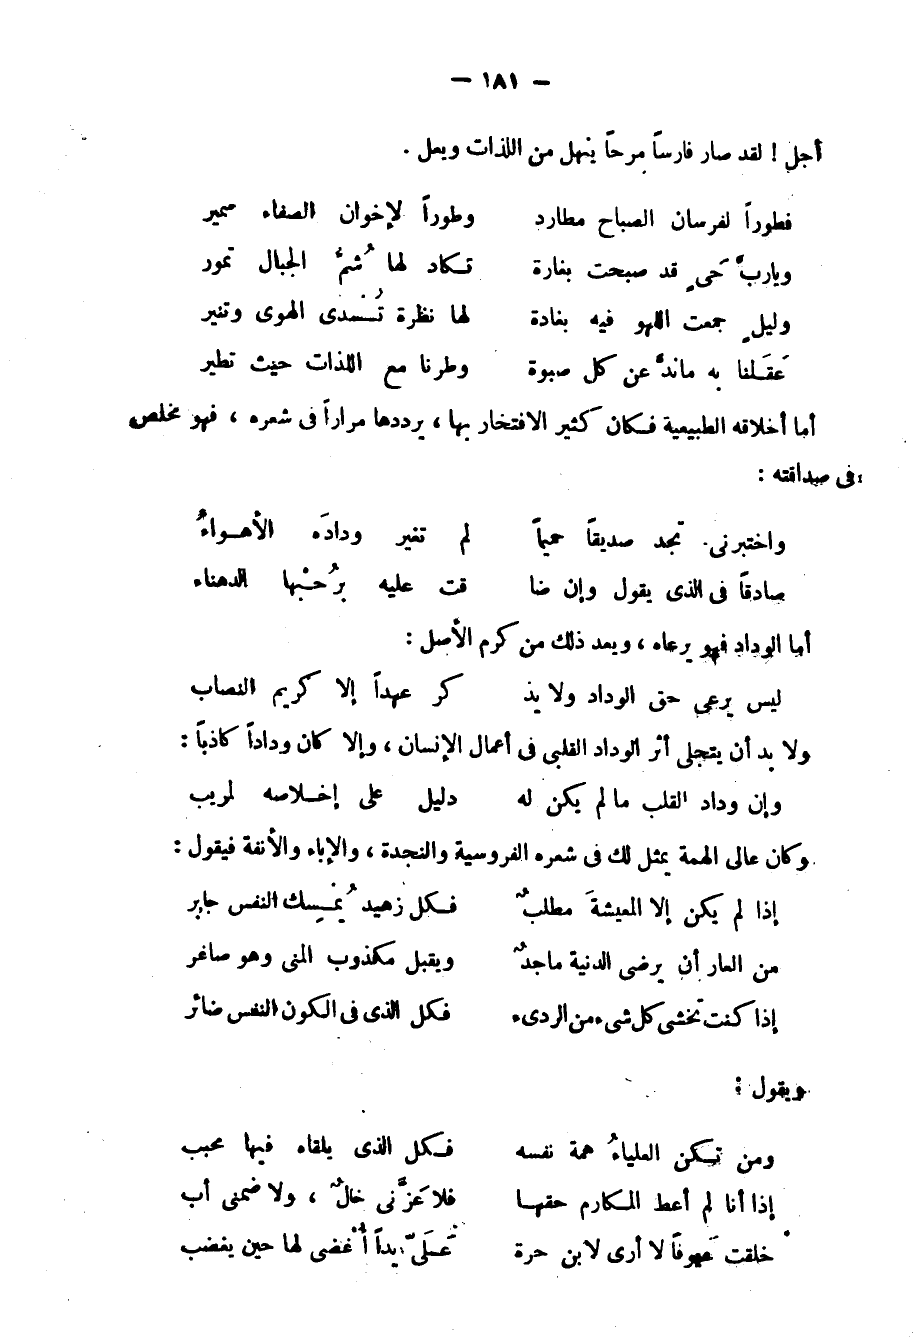 — ١٨١ —
أجل ! لقد صار فارساً مرحاً ينهل من اللذات ويعل .
فطوراً لفرسان الصباح مطارد وطوراً لإخوان الصفاء سمير
ويارب حَىٍ قد صبحت بغارة تكاد لها شُمُّ الجبال تمور
وليلٍ جمعت اللهو فيه بغادة لها نظرة تُسْدى الهوى وتنير
عَقَلنا به ماندَّ عن كل صبوة وطرنا مع اللذات حيث تطير
أما أخلاقه الطبيعية فكان كثير الافتخار بها ، يرددها مراراً فى شعره ، فهو مخلص
فى صداقته :
واختبرنى تجد صديقاً حميماً لم تغير ودادَه الأهواءُ
صادقاً فى الذى يقول وإن ضا قت عليه برُحْبها الدهناء
أما الوداد فهو يرعاه ، ويعد ذلك من كرم الأصل :
ليس يرعى حق الوداد ولا يذ كر عهداً إلا كريم النصاب
ولا بد أن يتجلى أثر الوداد القلبى فى أعمال الإنسان ، وإلا كان وداداً كاذباً :
وإن وداد القلب ما لم يكن له دليل على إخلاصه لمريب
وكان عالى الهمة يمثل لك فى شعره الفروسية والنجدة ، والإباء والأنفة فيقول :
إذا لم يكن إلا المعيشةَ مطلبٌ فكل زهيد يُمْسِك النفس جابر
من العار أن يرضى الدنية ماجدٌ ويقبل مكذوب المنى وهو صاغر
إذا كنت تخشى كل شىء من الردىء فكل الذى فى الكون النفس ضائر
ويقول :
ومن تكن العلياءُ همة نفسه فكل الذى يلقاه فيها محبب
إذا أنا لم أعط المكارم حقها فلا عَزَّنى خالٌ ، ولا ضمنى أب
خلقت عَيوفاً لا أرى لابن حرة عَلَىَّ يداً أُغضى لها حين يغضب